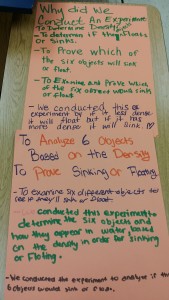 Why did We
Conduct An Experiment
To Determine Density
- To determin if things floats
or sinks.
- To Prove which of
the six objects will sink
or float.
- To Examine and Prove which
of the six object would sink
or float
- We conducted this
experiment by if it less dense
it will float but if it has
more dense it will sink
To Analyze 6 Objects
Based on the Density
To Prove Sinking or Floating.
- To examine six different objects to
see if they'll sink or float.
conducted this experiment to
determine the six objects and
how they appear in water based
on the density in order for sinking
or floting.
- We conducted the experiment to analyze if the
6 objects would sink or float.